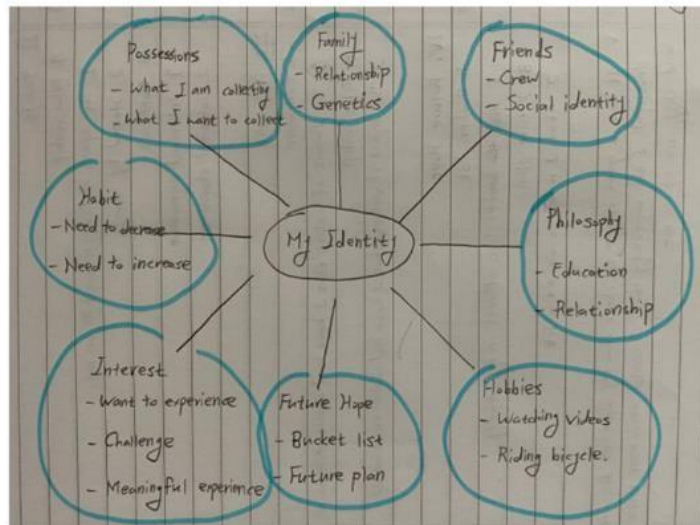 Possessions
- What I am collecting
- What I want to collect
Family
- Relationship
- Genetics
Friends
- Crew
- Social identity
Habit
- Need to decrease
- Need to increase
My Identity
Philosophy
- Education
- Relationship
Interest
- Want to experience
- Challenge
- Meaningful experience
Future Hope
- Bucket list
- Future plan
Hobbies
- Watching videos
- Riding bicycle.